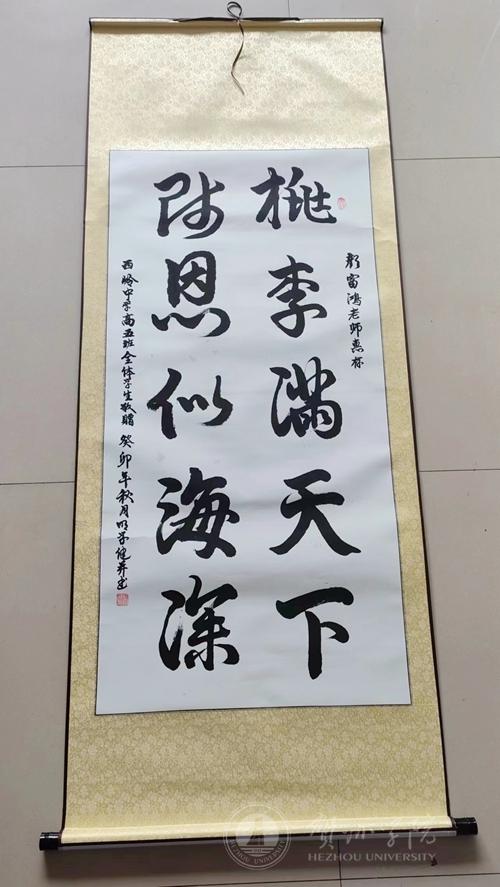 富鸿老师惠存
桃李满天下
师恩似海深
西岭中学高五班全体学生敬赠 癸卯年秋月
贺州学院
HEZHOU UNIVERSITY